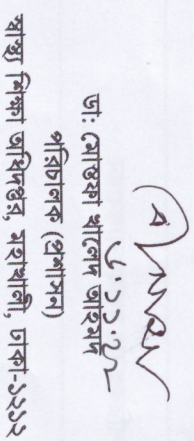 ডা: মোস্তফা খালেদ আহমদ
পরিচালক (প্রশাসন)
স্বাস্থ্য শিক্ষা অধিদপ্তর, মহাখালী, ঢাকা-১২১২